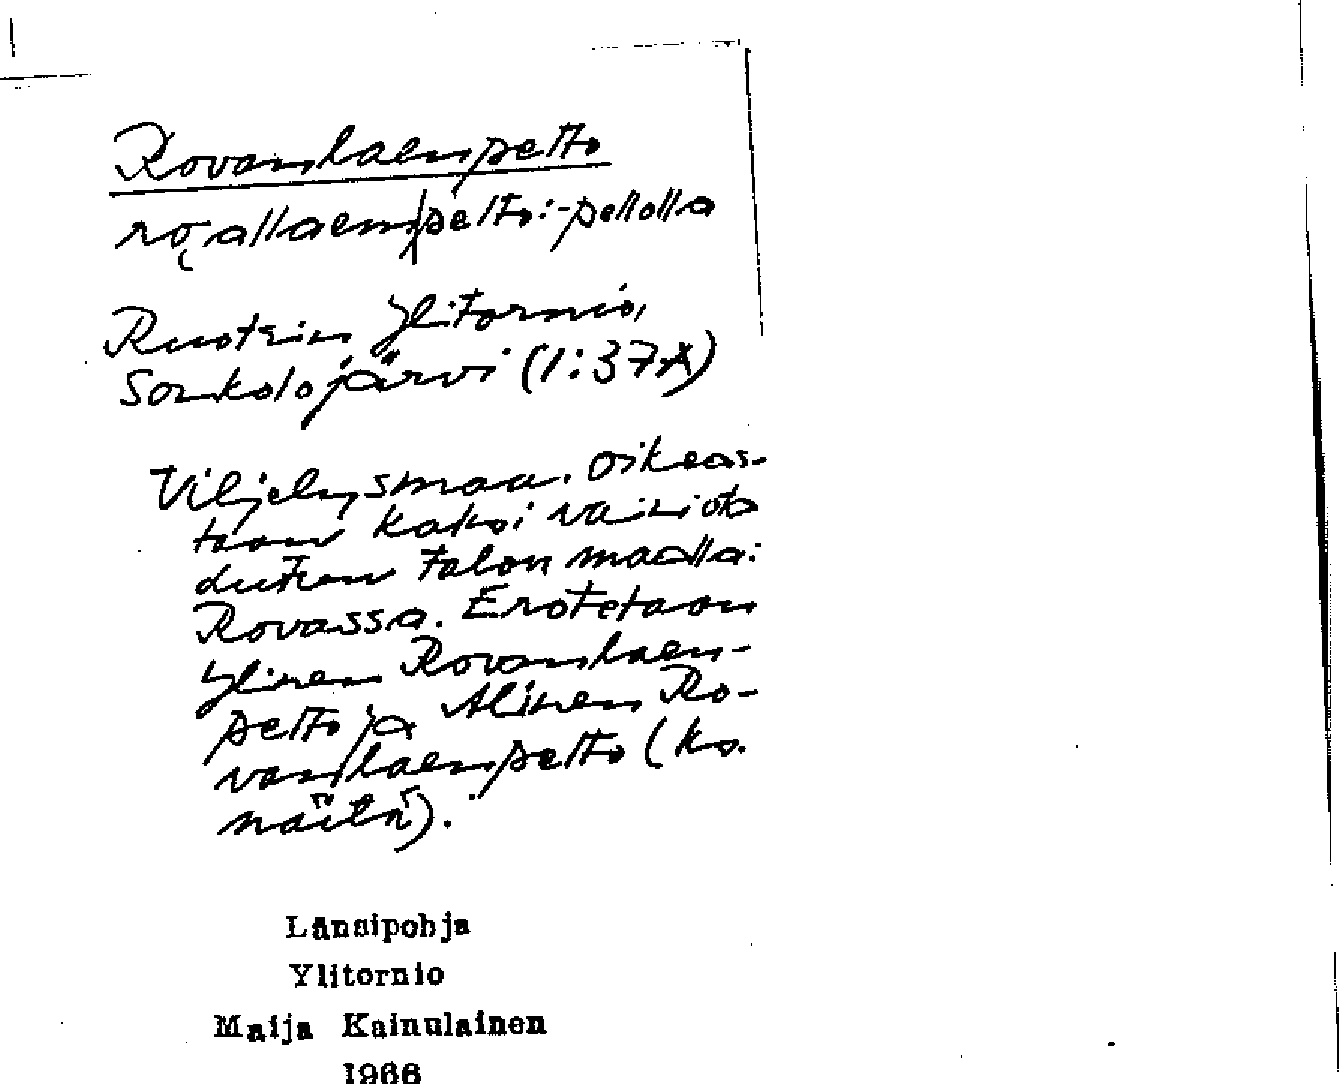 Rovanlaenpelto
ro̜allaem|pelto:-pellolla
Ruotsin Ylitornio,
Sonkolojärvi (1:37A)
Viljelysmaa. Oikeas-
taan kaksi vainiota
duḱan talon maalla:
Rovassa. Erotetaan
Ylinen Rovanlaen-
pelto ja Alinen Ro-
vanlaenpelto (ks.
näitä).
Länsipohja
Ylitornio
Maija Kainulainen
1966